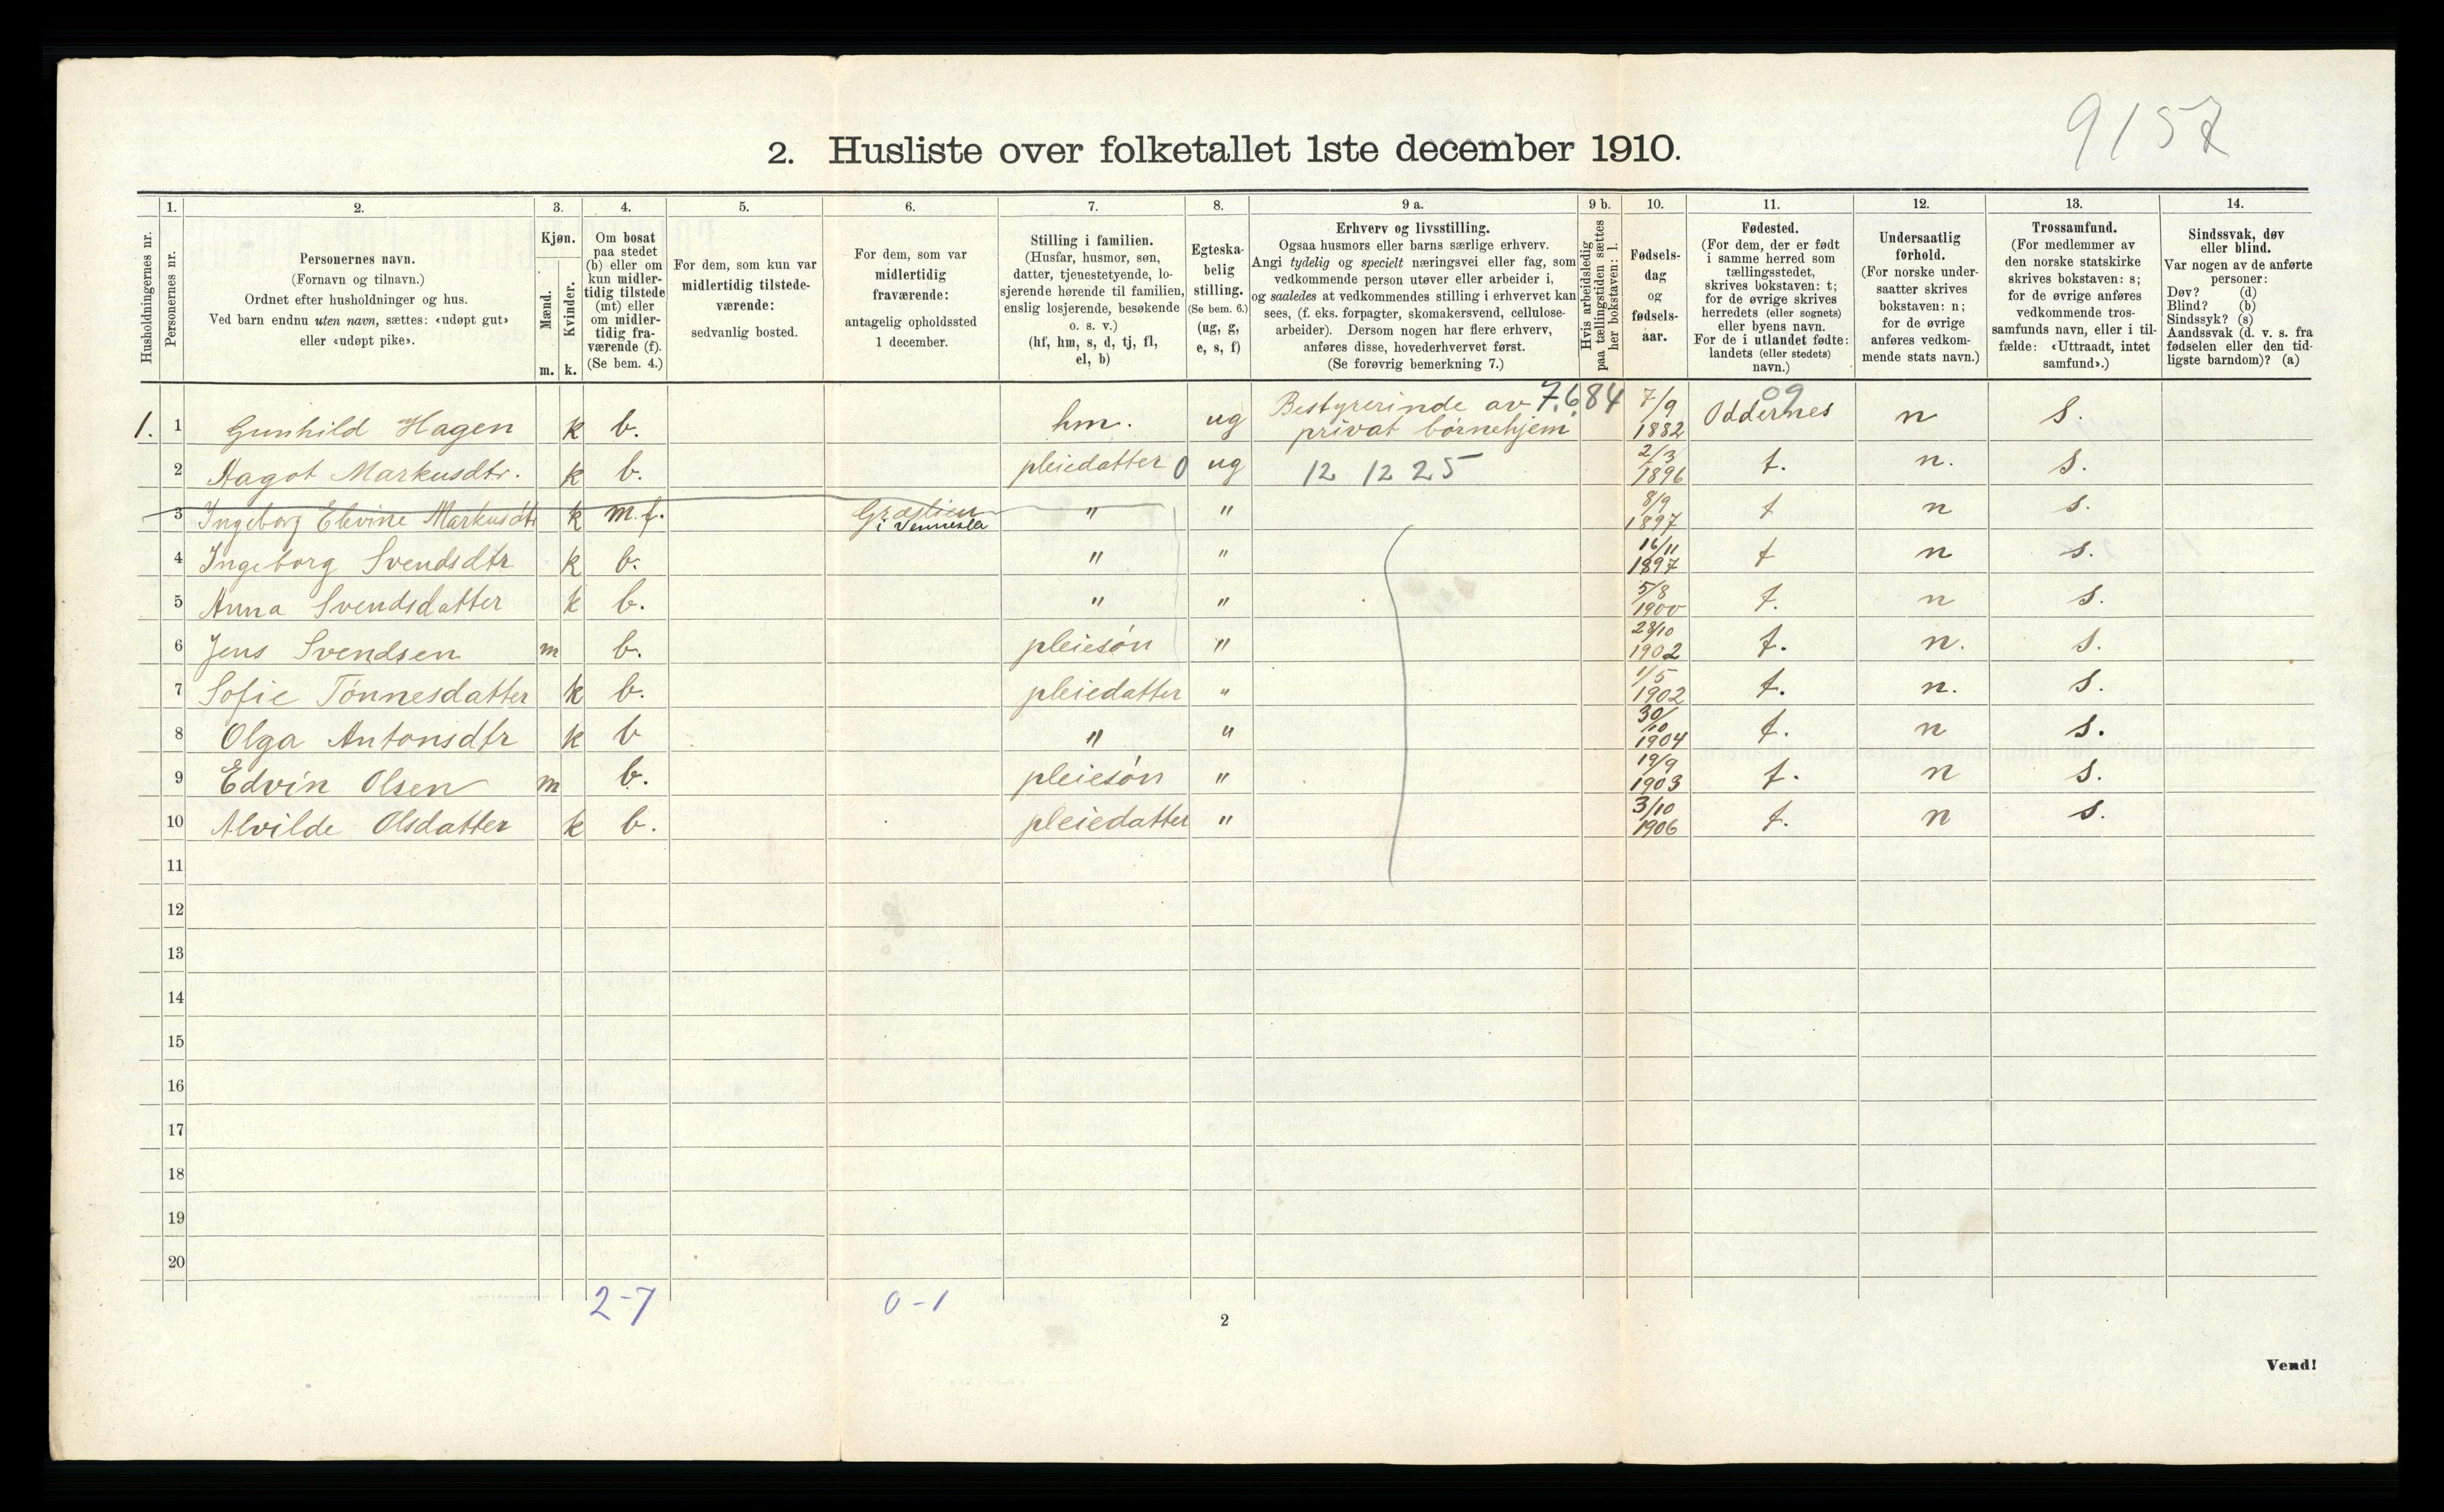 9157
2. Husliste over folketallet 1ste december 1910.
Husholdningernes nr.
1.
Personernes nr.
2.
Personernes navn.
(Fornavn og tilnavn.)
Ordnet efter husholdninger og hus.
Ved barn endnu uten navn, sættes: «udøpt gut»
eller «udøpt pike».
3.
Kjøn.
Mænd.
Kvinder.
m. k.
4.
Om bosat
paa stedet
(b) eller om
kun midler-
tidig tilstede
(mt) eller
om midler-
tidig fra-
værende (f).
(Se bem. 4.)
5.
For dem, som kun var
midlertidig tilstede-
værende:
sedvanlig bosted.
6.
For dem, som var
midlertidig
fraværende:
antagelig opholdssted
1 december.
7.
Stilling i familien.
(Husfar, husmor, søn,
datter, tjenestetyende, lo-
sjerende hørende til familien,
enslig losjerende, besøkende
o. s. v.)
(hf, hm, s, d, tj, fl,
el, b)
8.
Egteska-
belig
stilling.
(Se bem. 6.)
(ug, g,
e, s, f)
9 a.
Erhverv og livsstilling.
Ogsaa husmors eller barns særlige erhverv.
Angi tydelig og specielt næringsvei eller fag, som
vedkommende person utøver eller arbeider i,
og saaledes at vedkommendes stilling i erhvervet kan
sees, (f. eks. forpagter, skomakersvend, cellulose-
arbeider). Dersom nogen har flere erhverv,
anføres disse, hovederhvervet først.
(Se forøvrig bemerkning 7.)
9 b.
Hvis arbeidsledig
paa tællingstiden sættes
her bokstaven: l.
10.
Fødsels-
dag
og
fødsels-
aar.
11.
Fødested.
(For dem, der er født
i samme herred som
tællingsstedet,
skrives bokstaven: t;
for de øvrige skrives
herredets (eller sognets)
eller byens navn.
For de i utlandet fødte:
landets (eller stedets)
navn.)
12.
Undersaatlig
forhold.
(For norske under-
saatter skrives
bokstaven: n;
for de øvrige
anføres vedkom-
mende stats navn.)
13.
Trossamfund.
(For medlemmer av
den norske statskirke
skrives bokstaven: s;
for de øvrige anføres
vedkommende tros-
samfunds navn, eller i til-
fælde: «Uttraadt, intet
samfund».)
14.
Sindssvak, døv
eller blind.
Var nogen av de anførte
personer:
Døv? (d)
Blind? (b)
Sindssyk? (s)
Aandssvak (d. v. s. fra
fødselen eller den tid-
ligste barndom)? (a)
1. 1 Gunhild Hagen k b. hm. ug Bestyrerinde av privat børnehjem 7.6.84 7/9 1882 Oddernes 09 n s.
2 Aagot Markusdtr. k b. pleiedatter 0 ug 12 12 25 2/3 1896 t. n. s.
3 Ingeborg Elevine Markusdtr k m.f. Græslien i Vennesla " " 8/9 1897 t n s.
4 Ingeborg Svendsdtr k b. " " 16/11 1897 t n s.
5 Anna Svendsdatter k b. " " 5/8 1900 t. n s.
6 Jens Svendsen m b. pleiesøn " 28/10 1902 t. n. s.
7 Sofie Tønnesdatter k b. pleiedatter " 1/5 1902 t. n. s.
8 Olga Antonsdtr k b " " 30/10 1904 t. n s.
9 Edvin Olsen m b. pleiesøn " 19/9 1903 t. n s.
10 Alvilde Olsdatter k b. pleiedatter " 3/10 1906 t. n s.
11
12
13
14
15
16
17
18
19
20
2-7 0-1
2
Vend!